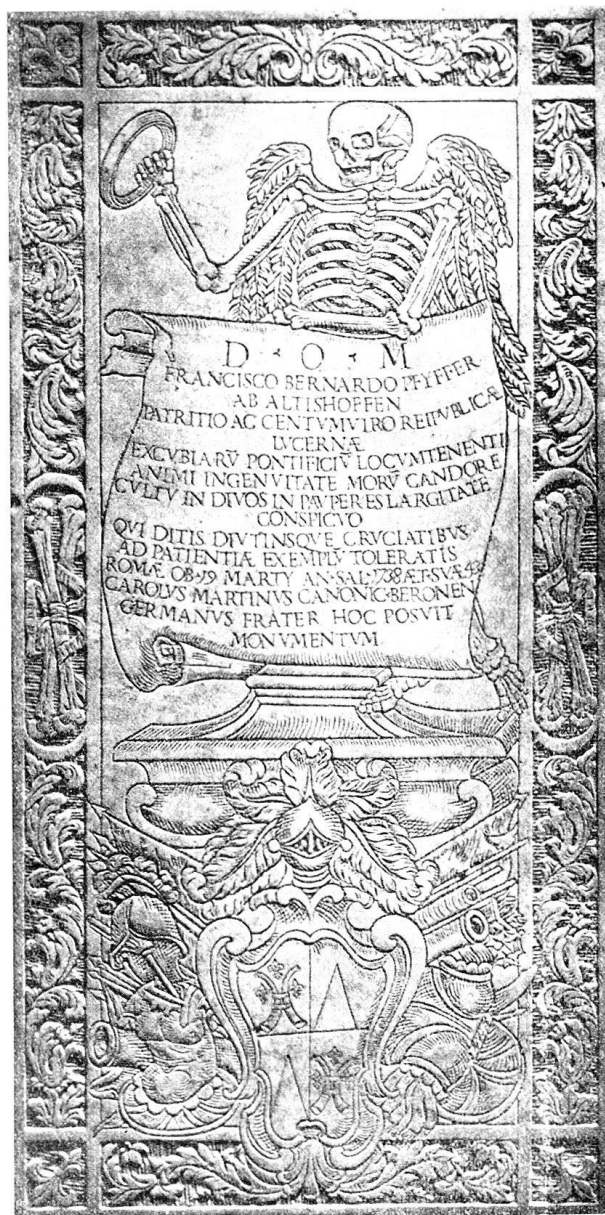 D · O · M
FRANCISCO BERNARDO PFYFFER
AB ALTISHOFFEN
PATRITIO AC CENTVMVIRO REIPVBLICÆ
LVCERNÆ
EXCVBIARV̄ PONTIFICIV̄ LOCVMTENENTI
ANIMI INGENVITATE MORV̄ CANDORE
CVLTV IN DIVOS IN PAVPERES LARGITATE
CONSPICVO
QVI DITIS DIVTINSQVE CRVCIATIBVS
AD PATIENTIÆ EXEMPLV̄ TOLERATIS
ROMÆ OB·19 MARTY AN·SAL·1738 ÆT·SVÆ
CAROLVS MARTINVS CANONIC·BERONEN
GERMANVS FRATER HOC POSVIT
MONVMENTVM